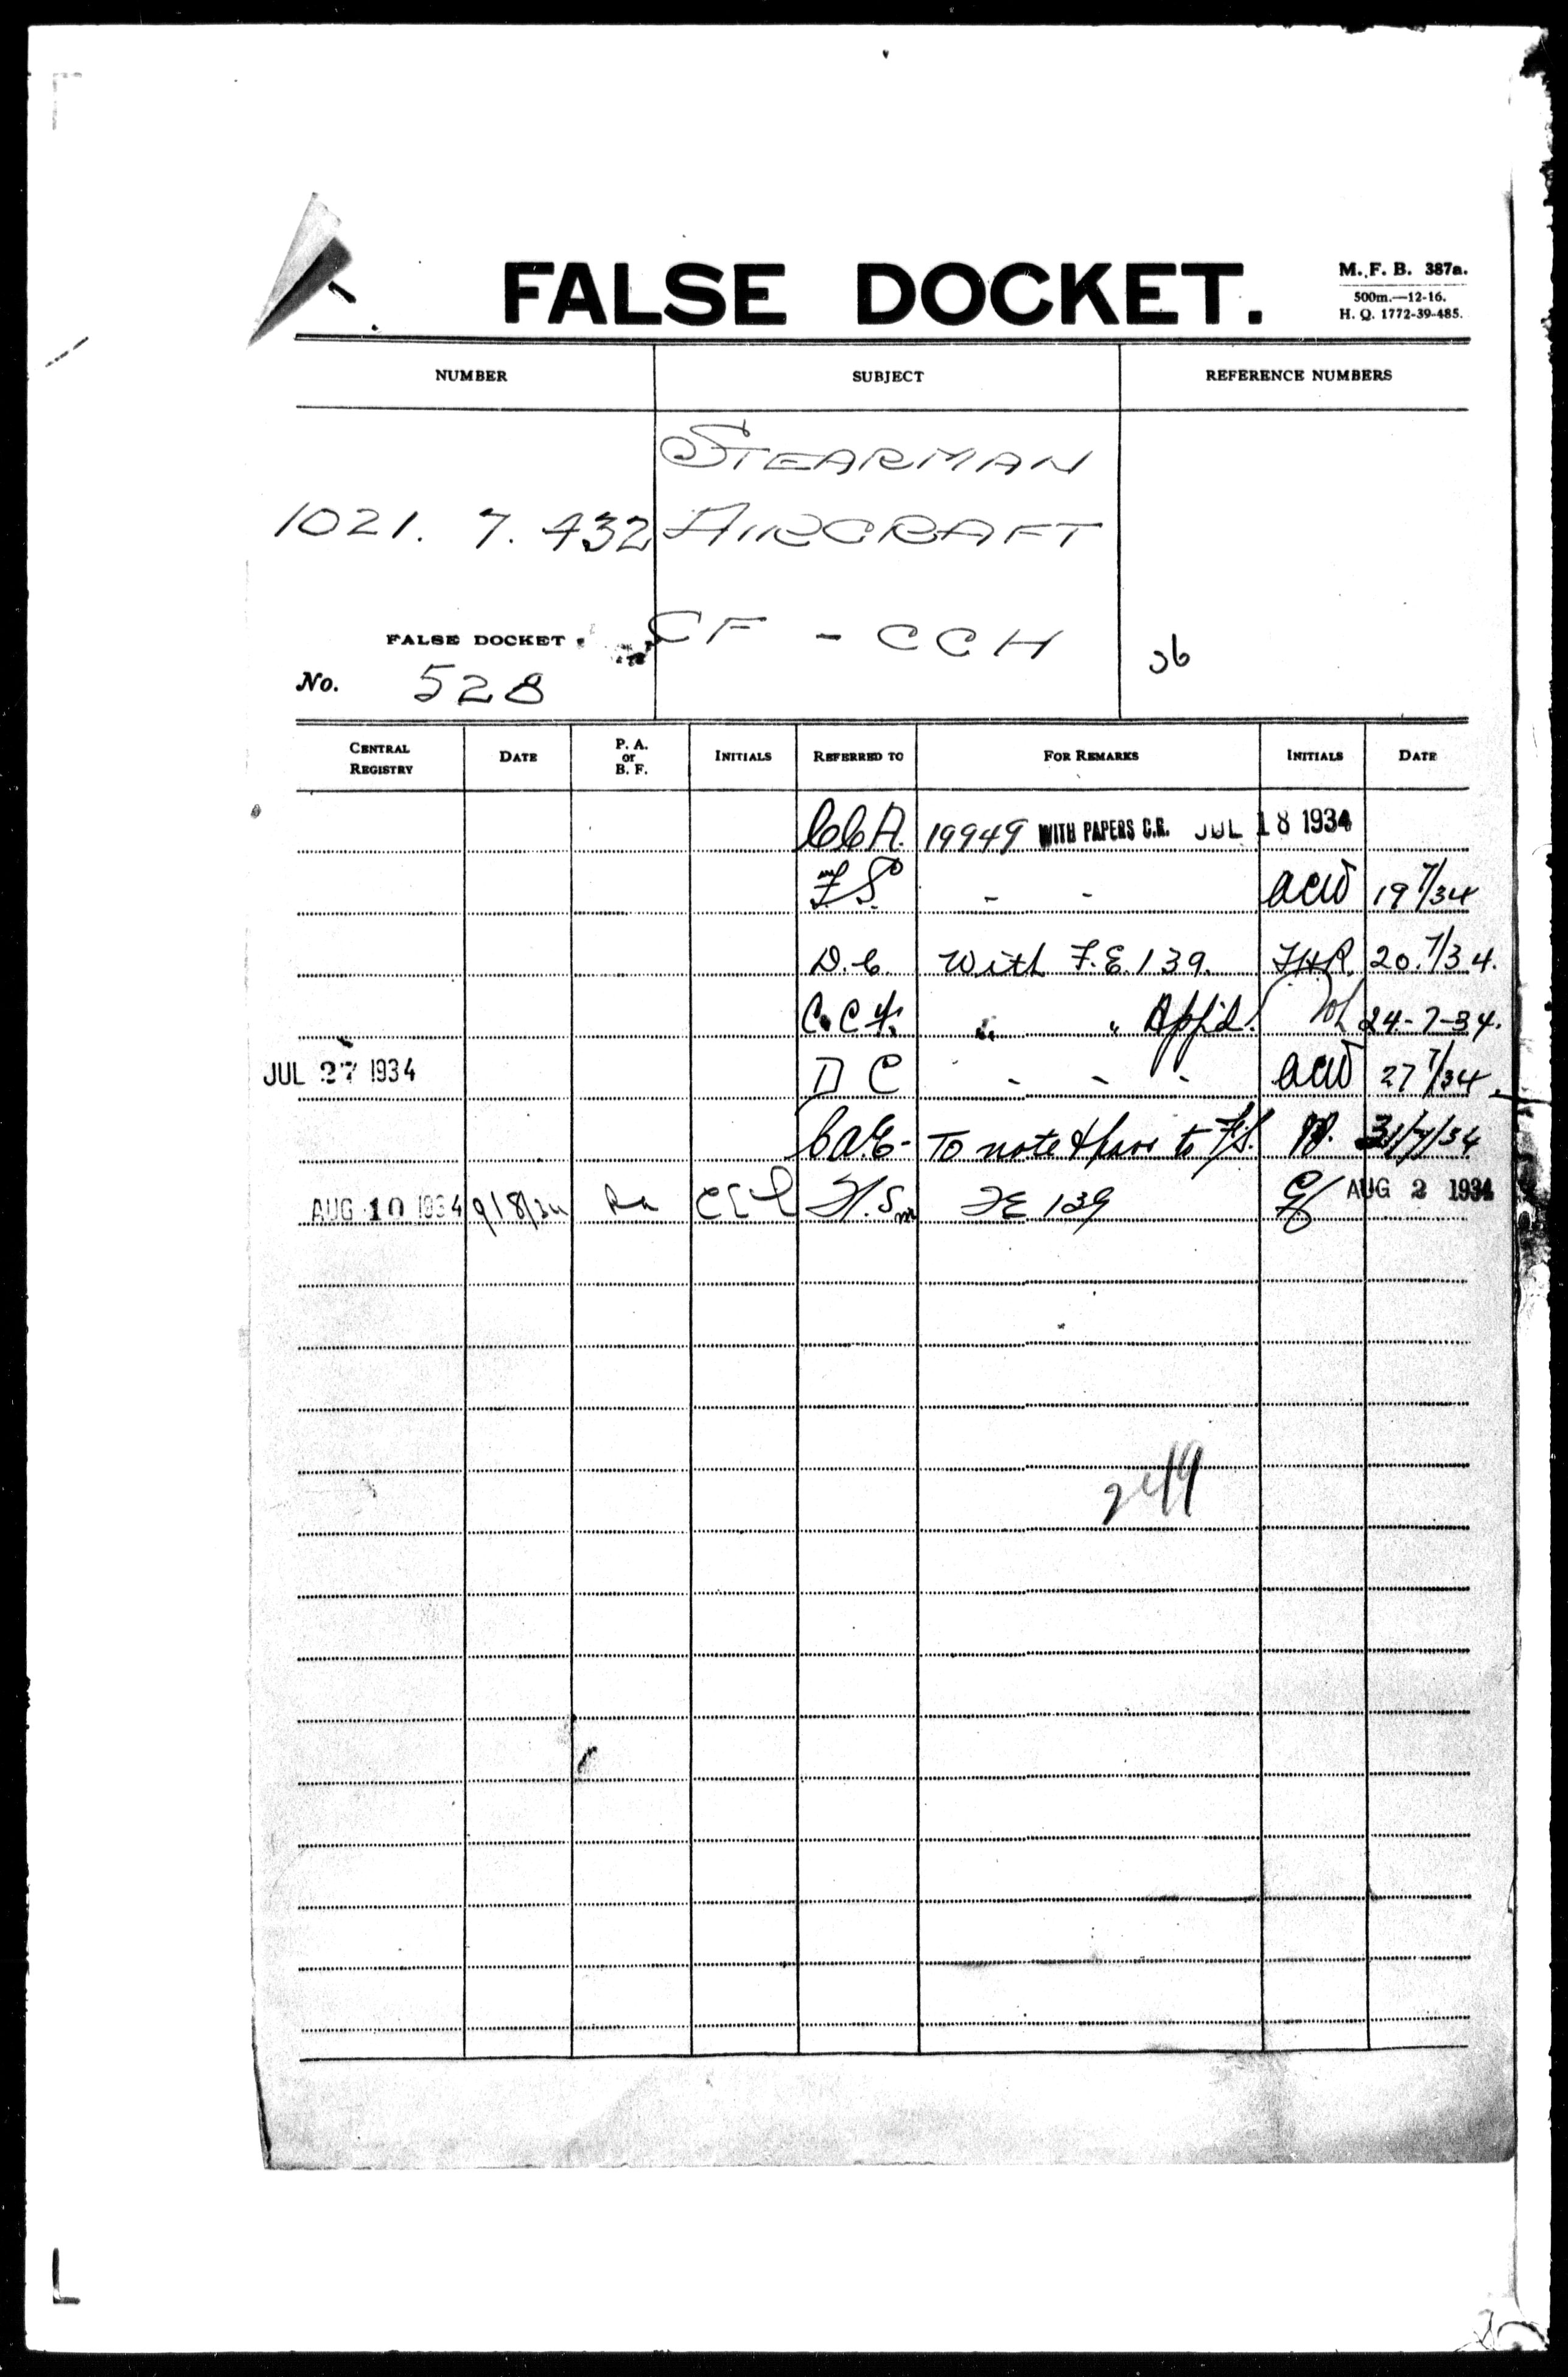 FALSE DOCKET.
M. F. B. 387a.
500m.—12-16.
H. Q. 1772-39-485.
NUMBER SUBJECT REFERENCE NUMBERS
STEARMAN
1021. 7. 432 AIRCRAFT
FALSE DOCKET CF - CCH
No. 528
CENTRAL REGISTRY DATE P. A. or B. F. INITIALS REFERRED TO FOR REMARKS INITIALS DATE
CCA. 19949 WITH PAPERS C.R. JUL 18 1934
FS. - - ACW 19 7/34
D.C. With F.E. 139. 20. 7/34.
" " App'd. 24-7-34.
JUL 27 1934 DC - - - ACW 27 7/34
To note & pass to F.S. 31/7/34
AUG 10 1934 9/8/34 FE 139 AUG 2 1934